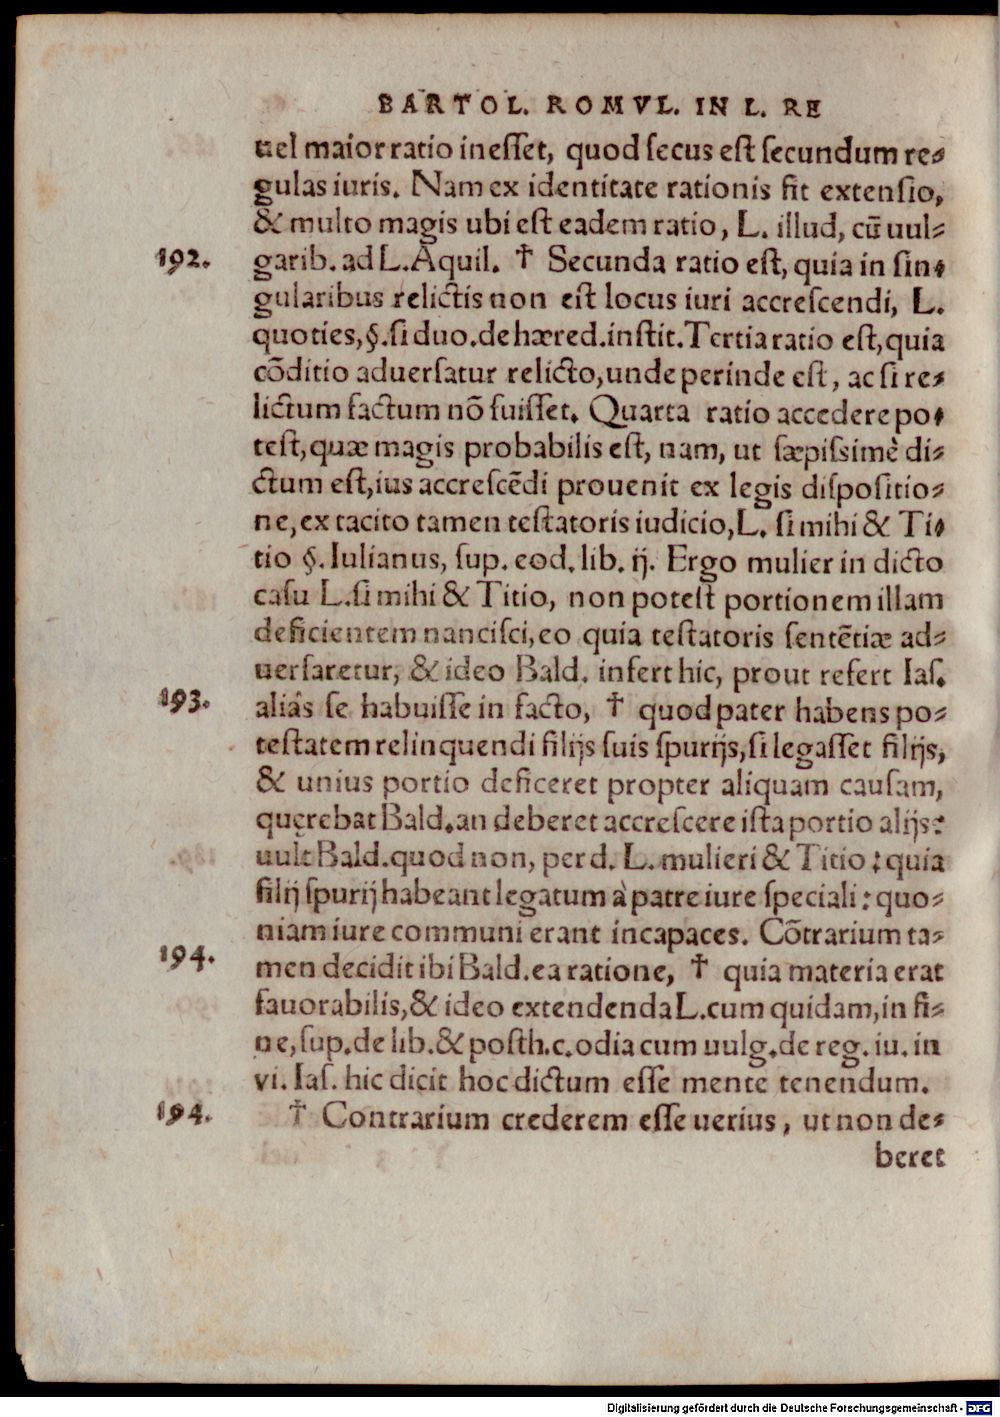 BARTOL. ROMVL. IN L. RE
uel maior ratio inesset, quod secus est secundum re-
gulas iuris. Nam ex identitate rationis fit extensio,
& multo magis ubi est eadem ratio, L. illud, cū uul-
192. garib. ad L. Aquil. † Secunda ratio est, quia in sin-
gularibus relictis non est locus iuri accrescendi, L.
quoties, §. si duo. de hæred. instit. Tertia ratio est, quia
cōditio aduersatur relicto, unde perinde est, ac si re-
lictum factum nō fuisset. Quarta ratio accedere po-
test, quæ magis probabilis est, nam, ut sæpissimè di-
ctum est, ius accrescēdi prouenit ex legis dispositio-
ne, ex tacito tamen testatoris iudicio, L. si mihi & Ti-
tio §. Iulianus, sup. eod. lib. ij. Ergo mulier in dicto
casu L. si mihi & Titio, non potest portionem illam
deficientem nancisci, eo quia testatoris sentētiæ ad-
uersaretur, & ideo Bald. infert hic, prout refert Ias.
193. aliâs se habuisse in facto, † quod pater habens po-
testatem relinquendi filijs suis spurijs, si legasset filijs,
& unius portio deficeret propter aliquam causam,
quęrebat Bald. an deberet accrescere ista portio alijs?
uult Bald. quod non, per d. L. mulieri & Titio: quia
filij spurij habeant legatum à patre iure speciali: quo-
niam iure communi erant incapaces. Cōtrarium ta-
194. men decidit ibi Bald. ea ratione, † quia materia erat
fauorabilis, & ideo extendenda L. cum quidam, in fi-
ne, sup. de lib. & posth. c. odia cum uulg. de reg. iu. in
vi. Ias. hic dicit hoc dictum esse mente tenendum.
194. † Contrarium crederem esse uerius, ut non de-
beret
Digitalisierung gefördert durch die Deutsche Forschungsgemeinschaft - DFG